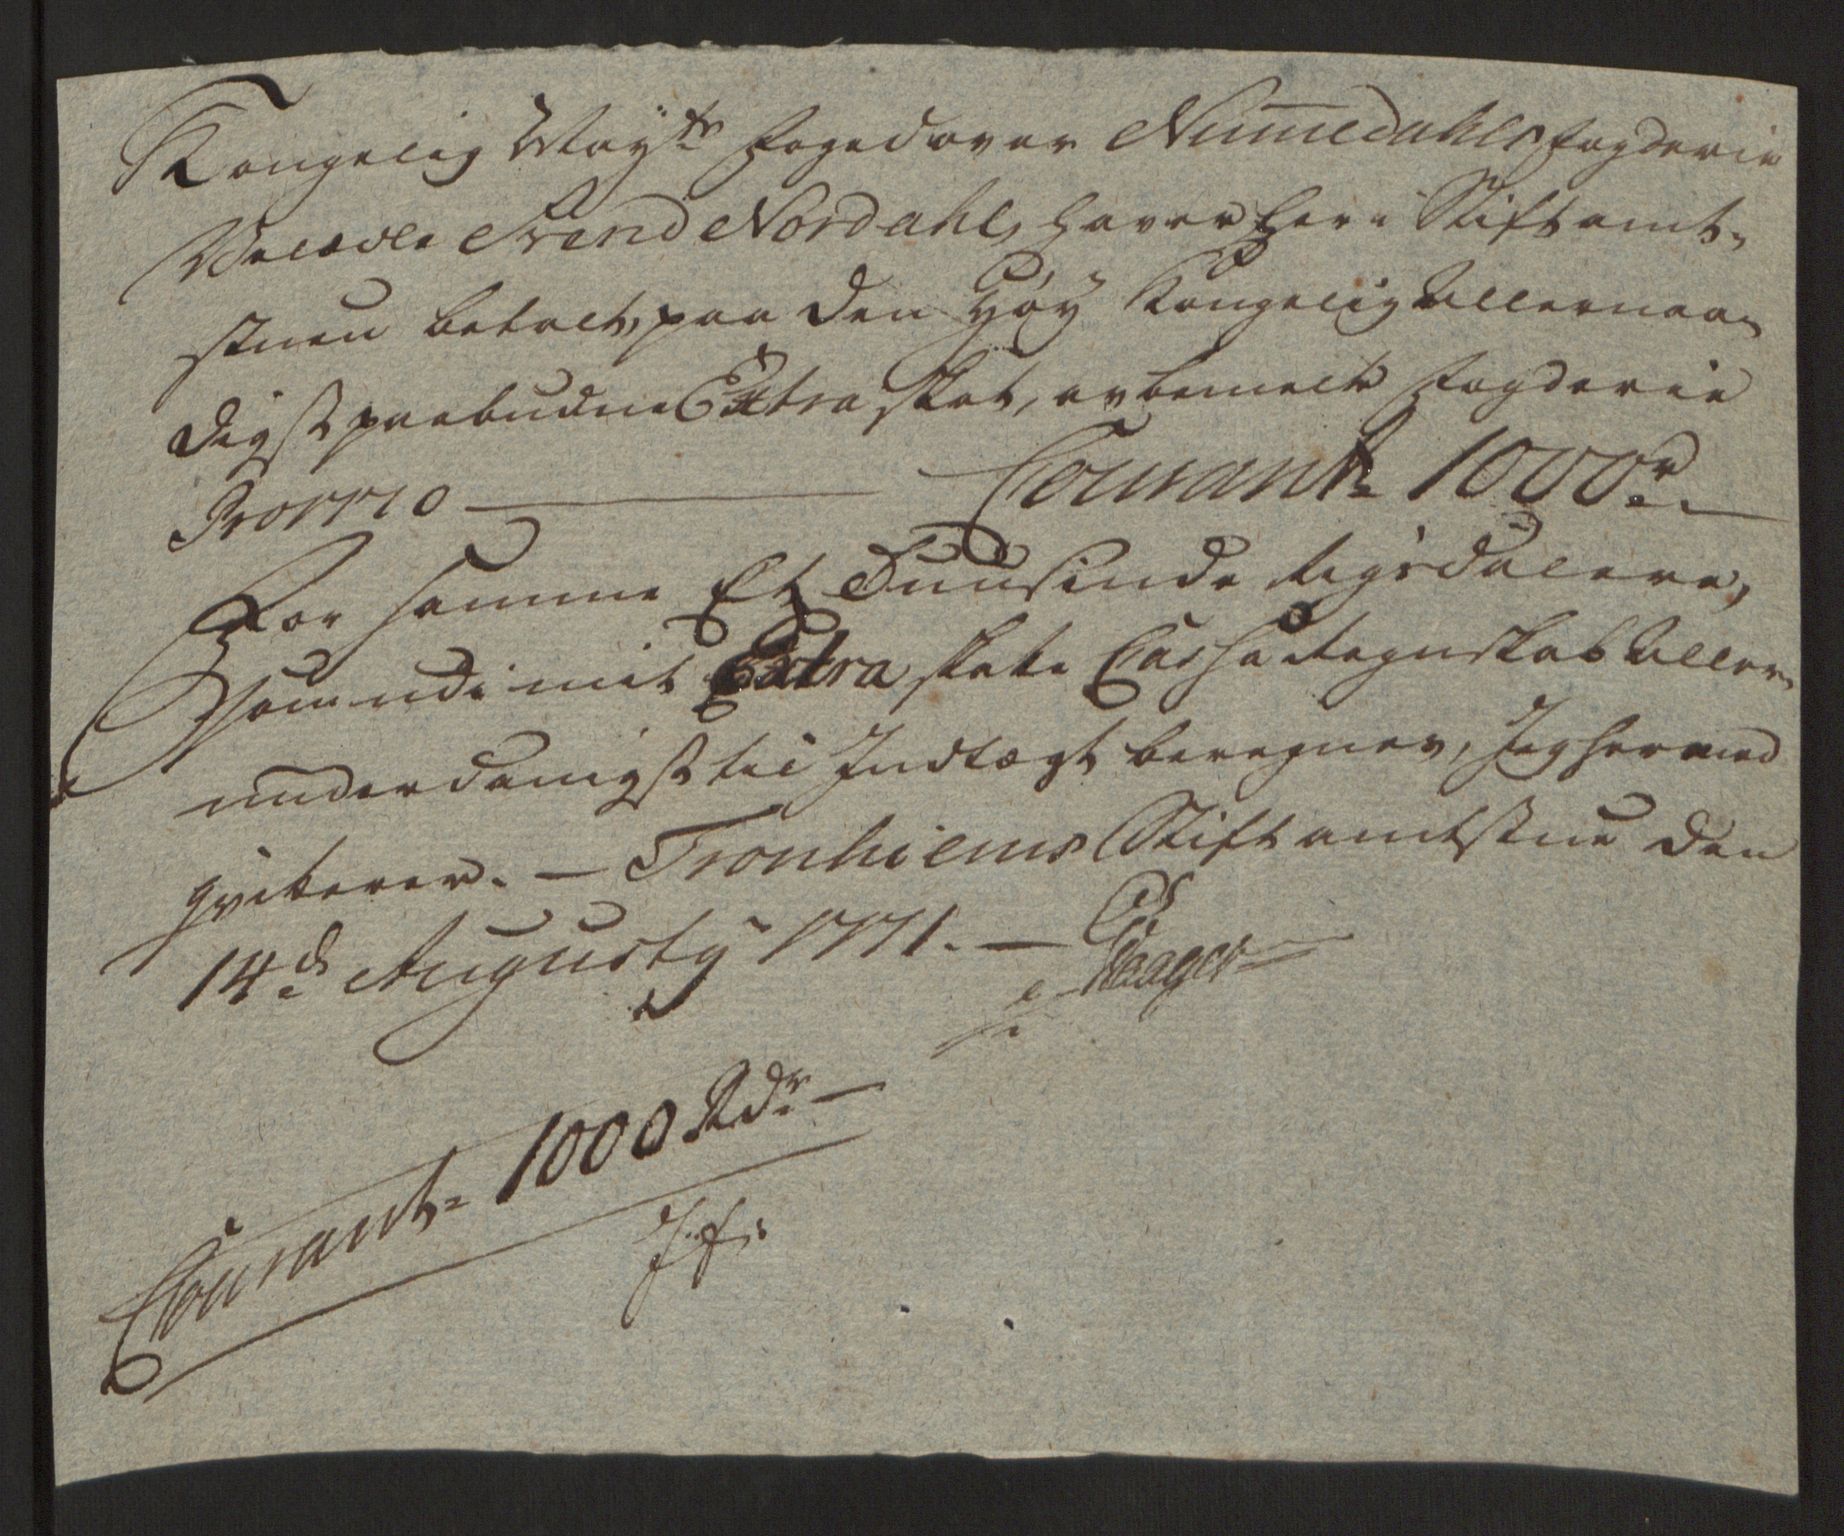 Kongelig Maÿtz Foged over Nummedahls Fogderie
Velædle Svend Nordahl, haver her i Stiftamt-
stuen betalt, paa den Høÿ Kongelig Allernaa-
digst paabudne Extra Skat, av bemelte Fogderie
Pro 1770 Courant 1000 r
For samme Et Tuusinde Rigsdalere,
som udi mit Extra Skatte Cassa Regnskab Aller-
underdanigst til Indtægt beregnes, Jeg hermed
qviterer. – Tronhiems Stiftamtstue den
14d Augusty 1771. –
Courant 1000 Rdr –